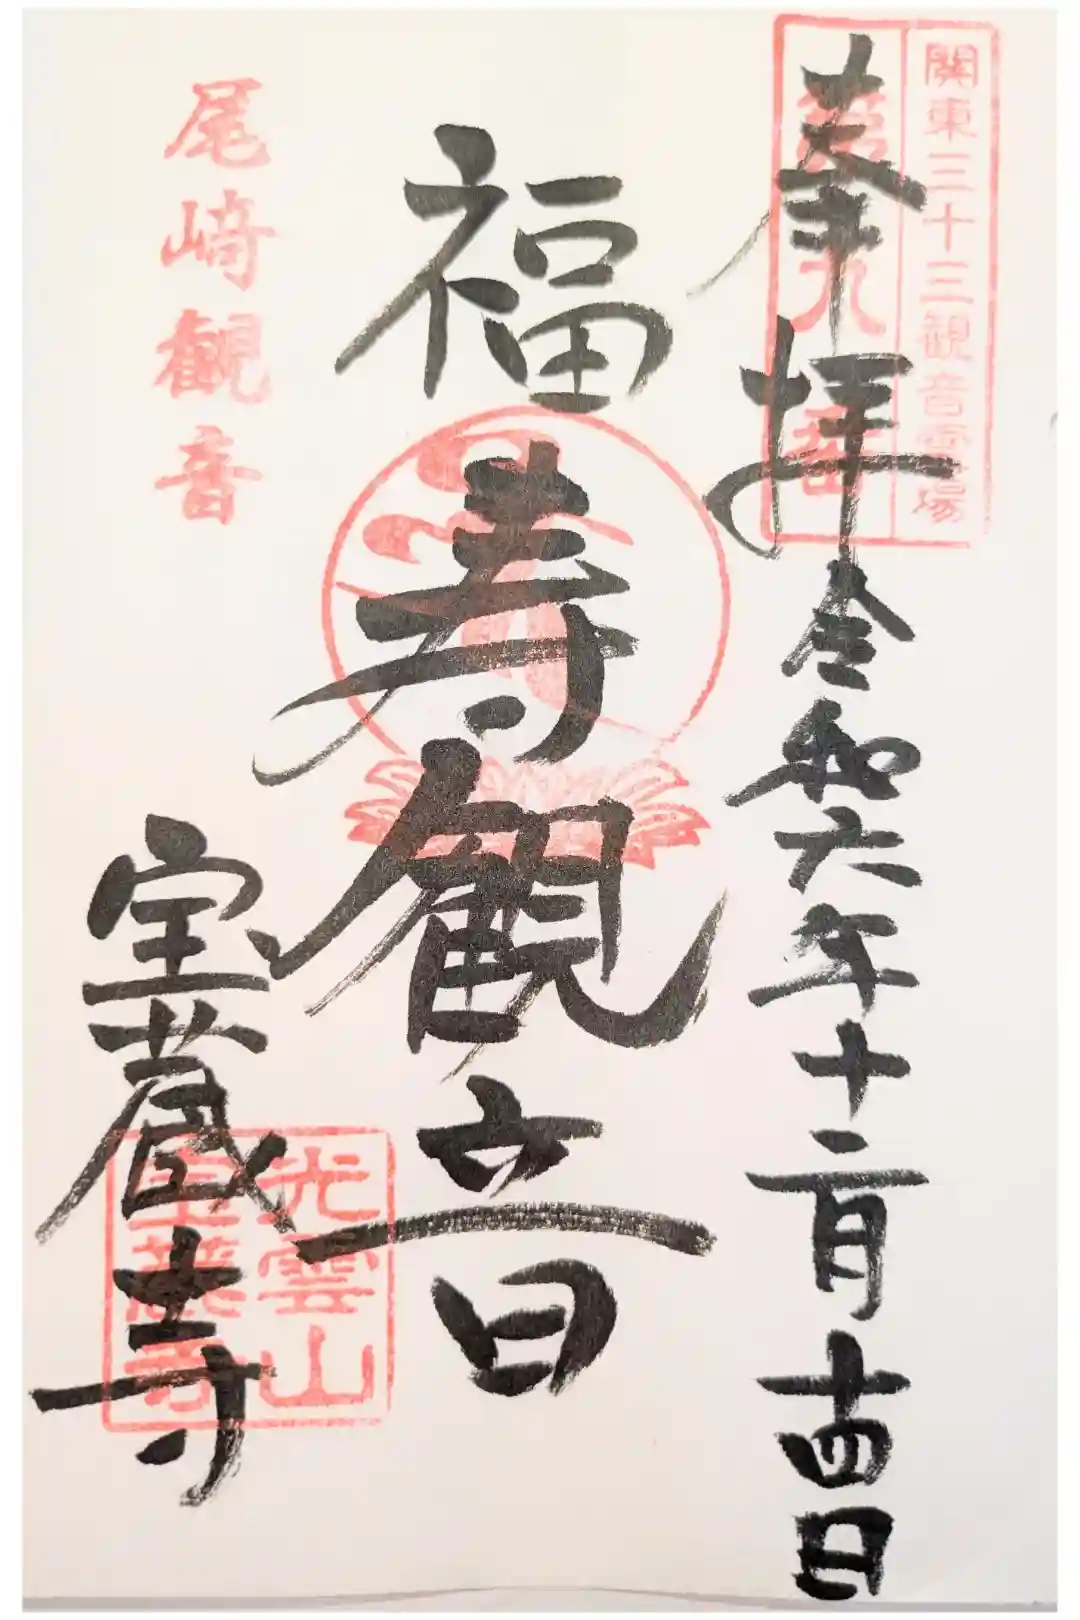 関東三十三観音霊場
奉拝
令和六年十二月十四日
福寿観音
尾﨑観音
宝蔵寺
光雲山